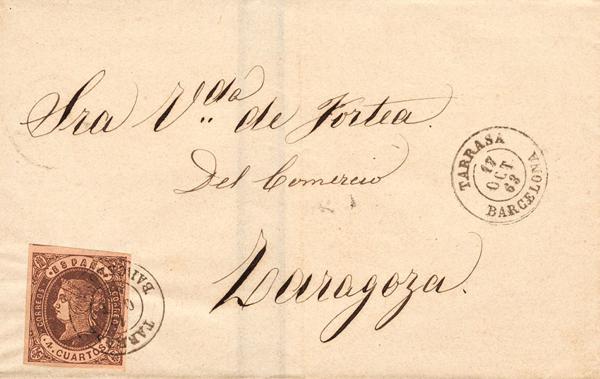 Sra V.da de Fortea.
Del Comercio
Zaragoza.
TARRASA
17
OCT
63
BARCELONA
ESPAÑA
CORREOS
4 CUARTOS